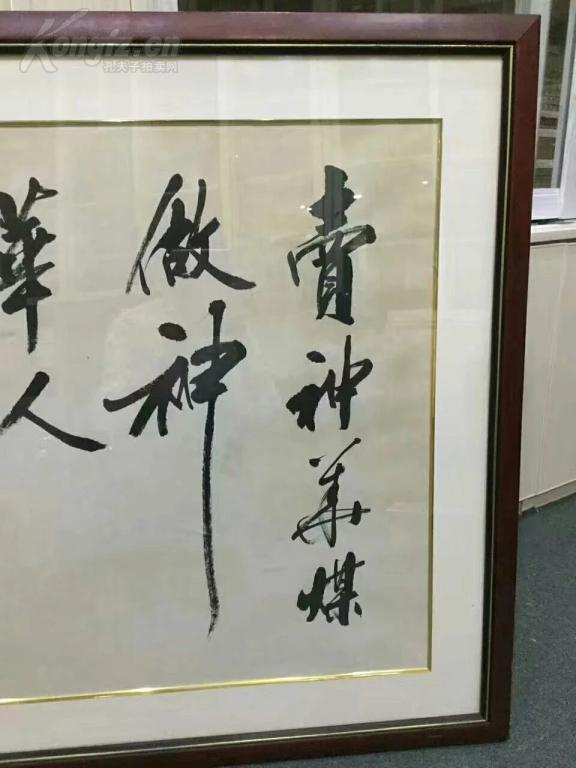 賣神华煤
做神
華人
Kongfz.cn
孔夫子拍卖网